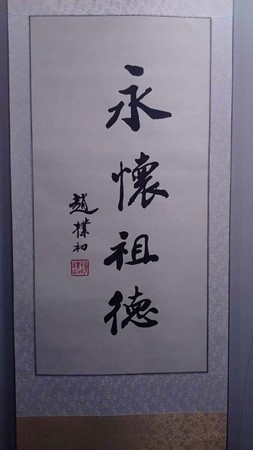 永懷祖德
趙樸初